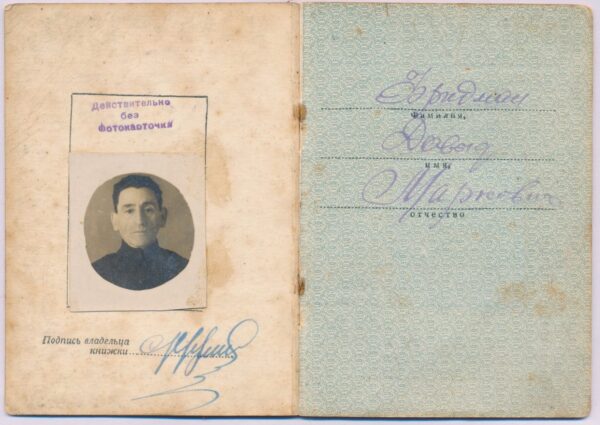 Действительно
без
фотокарточки
Подпись владельца
книжки
Фридман
фамилия,
Давид
имя,
Маркович
отчество